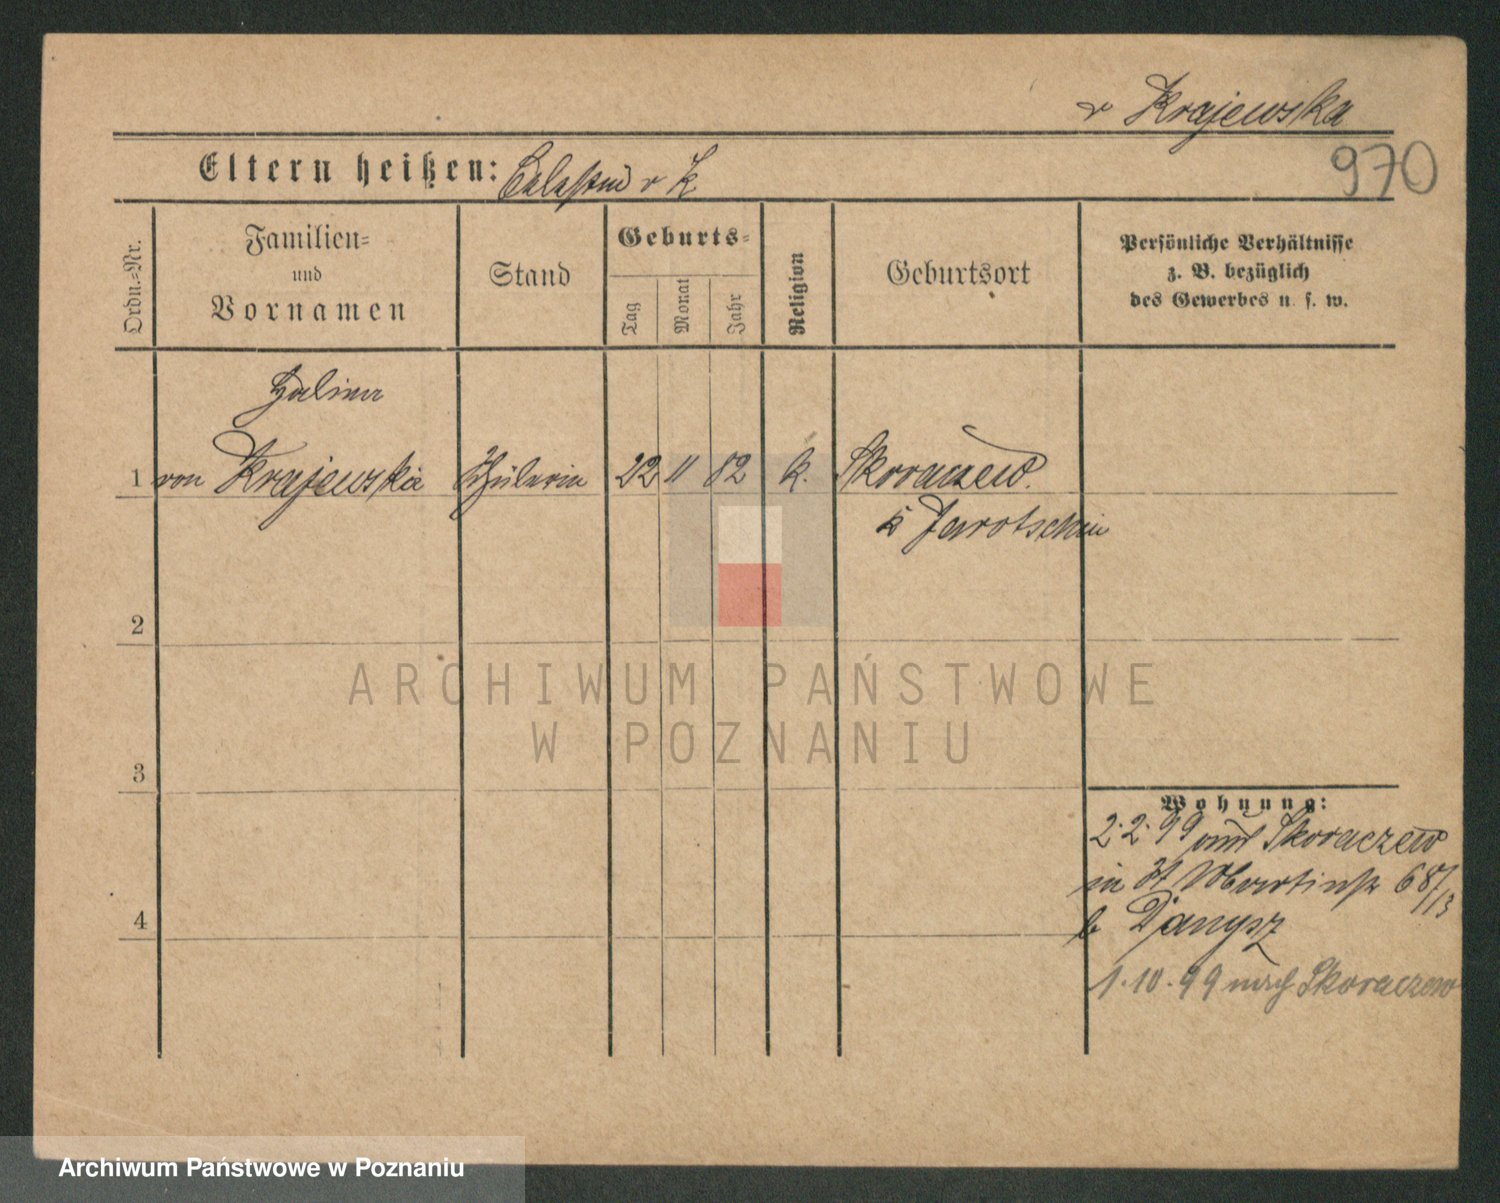 v Krajewska
970
Eltern heißen: Celestin v K
Ordn.-Nr.
Familien-
und
Vornamen
Stand
Geburts-
Tag
Monat
Jahr
Religion
Geburtsort
Persönliche Verhältnisse
z. B. bezüglich
des Gewerbes u. s. w.
Halina
1 von Krajewska Schülerin 22 11 82 k. Skoraczew
Jarotschin
2
3
4
Wohnung:
2.2.99 aus Skoraczew
in St Martinstr 68/13
b Danysz
1.10.99 nach Skoraczew
ARCHIWUM PAŃSTWOWE
W POZNANIU
Archiwum Państwowe w Poznaniu